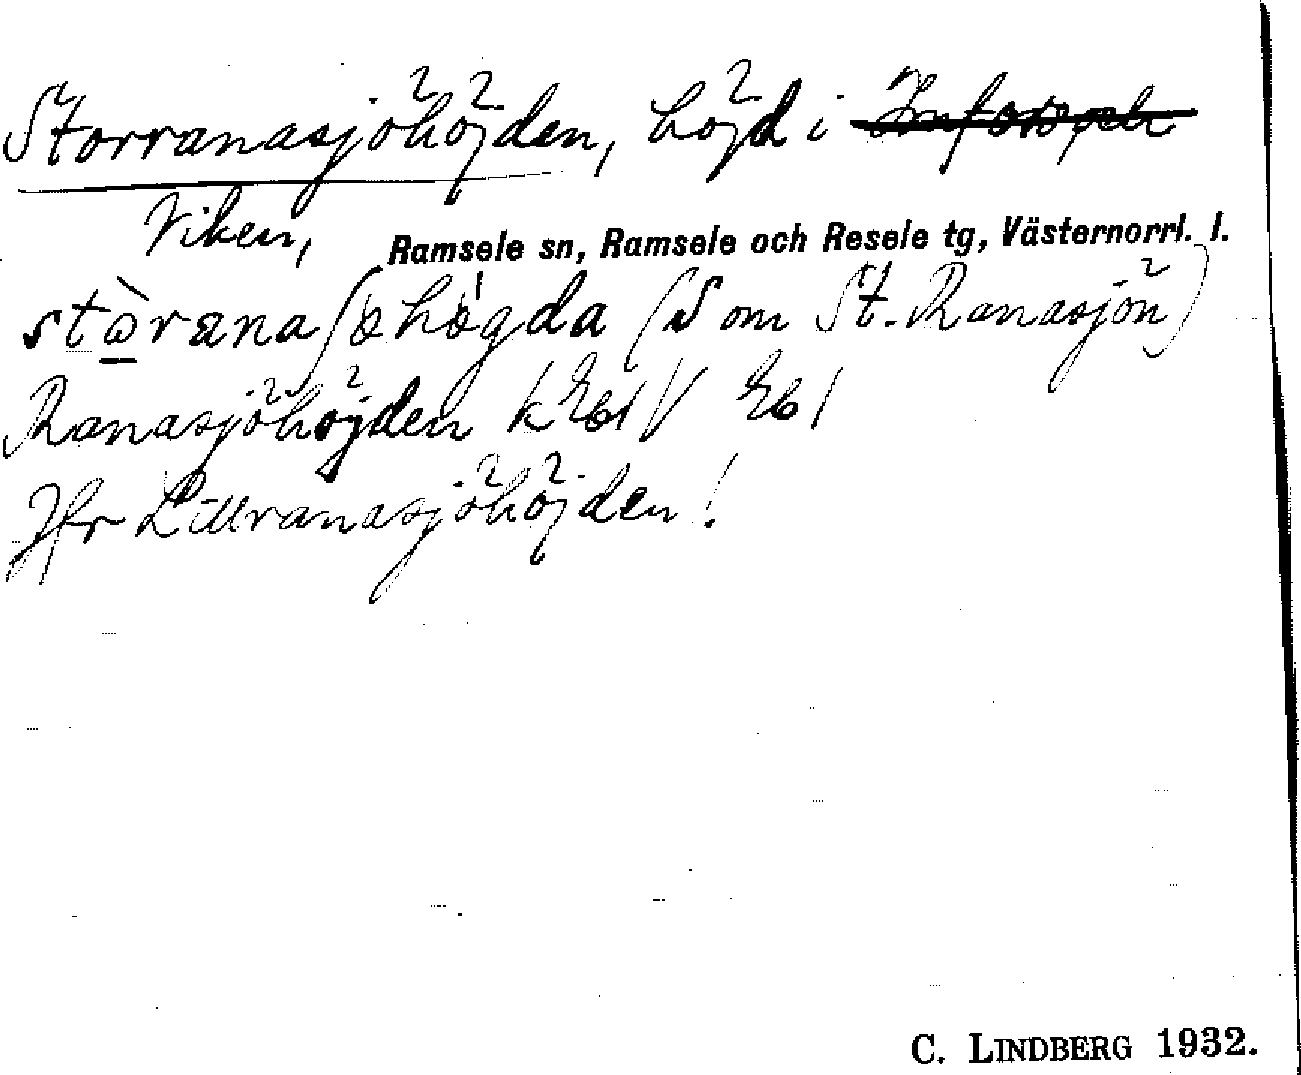 Storranasjöhöjden, höjd i
Viken, Ramsele sn, Ramsele och Resele tg, Västernorrl. l.
stòrana ʃøhøgda (S om St. Ranasjön)
Ranasjöhöjden k
Jfr Lillranasjöhöjden!
C. LINDBERG 1932.